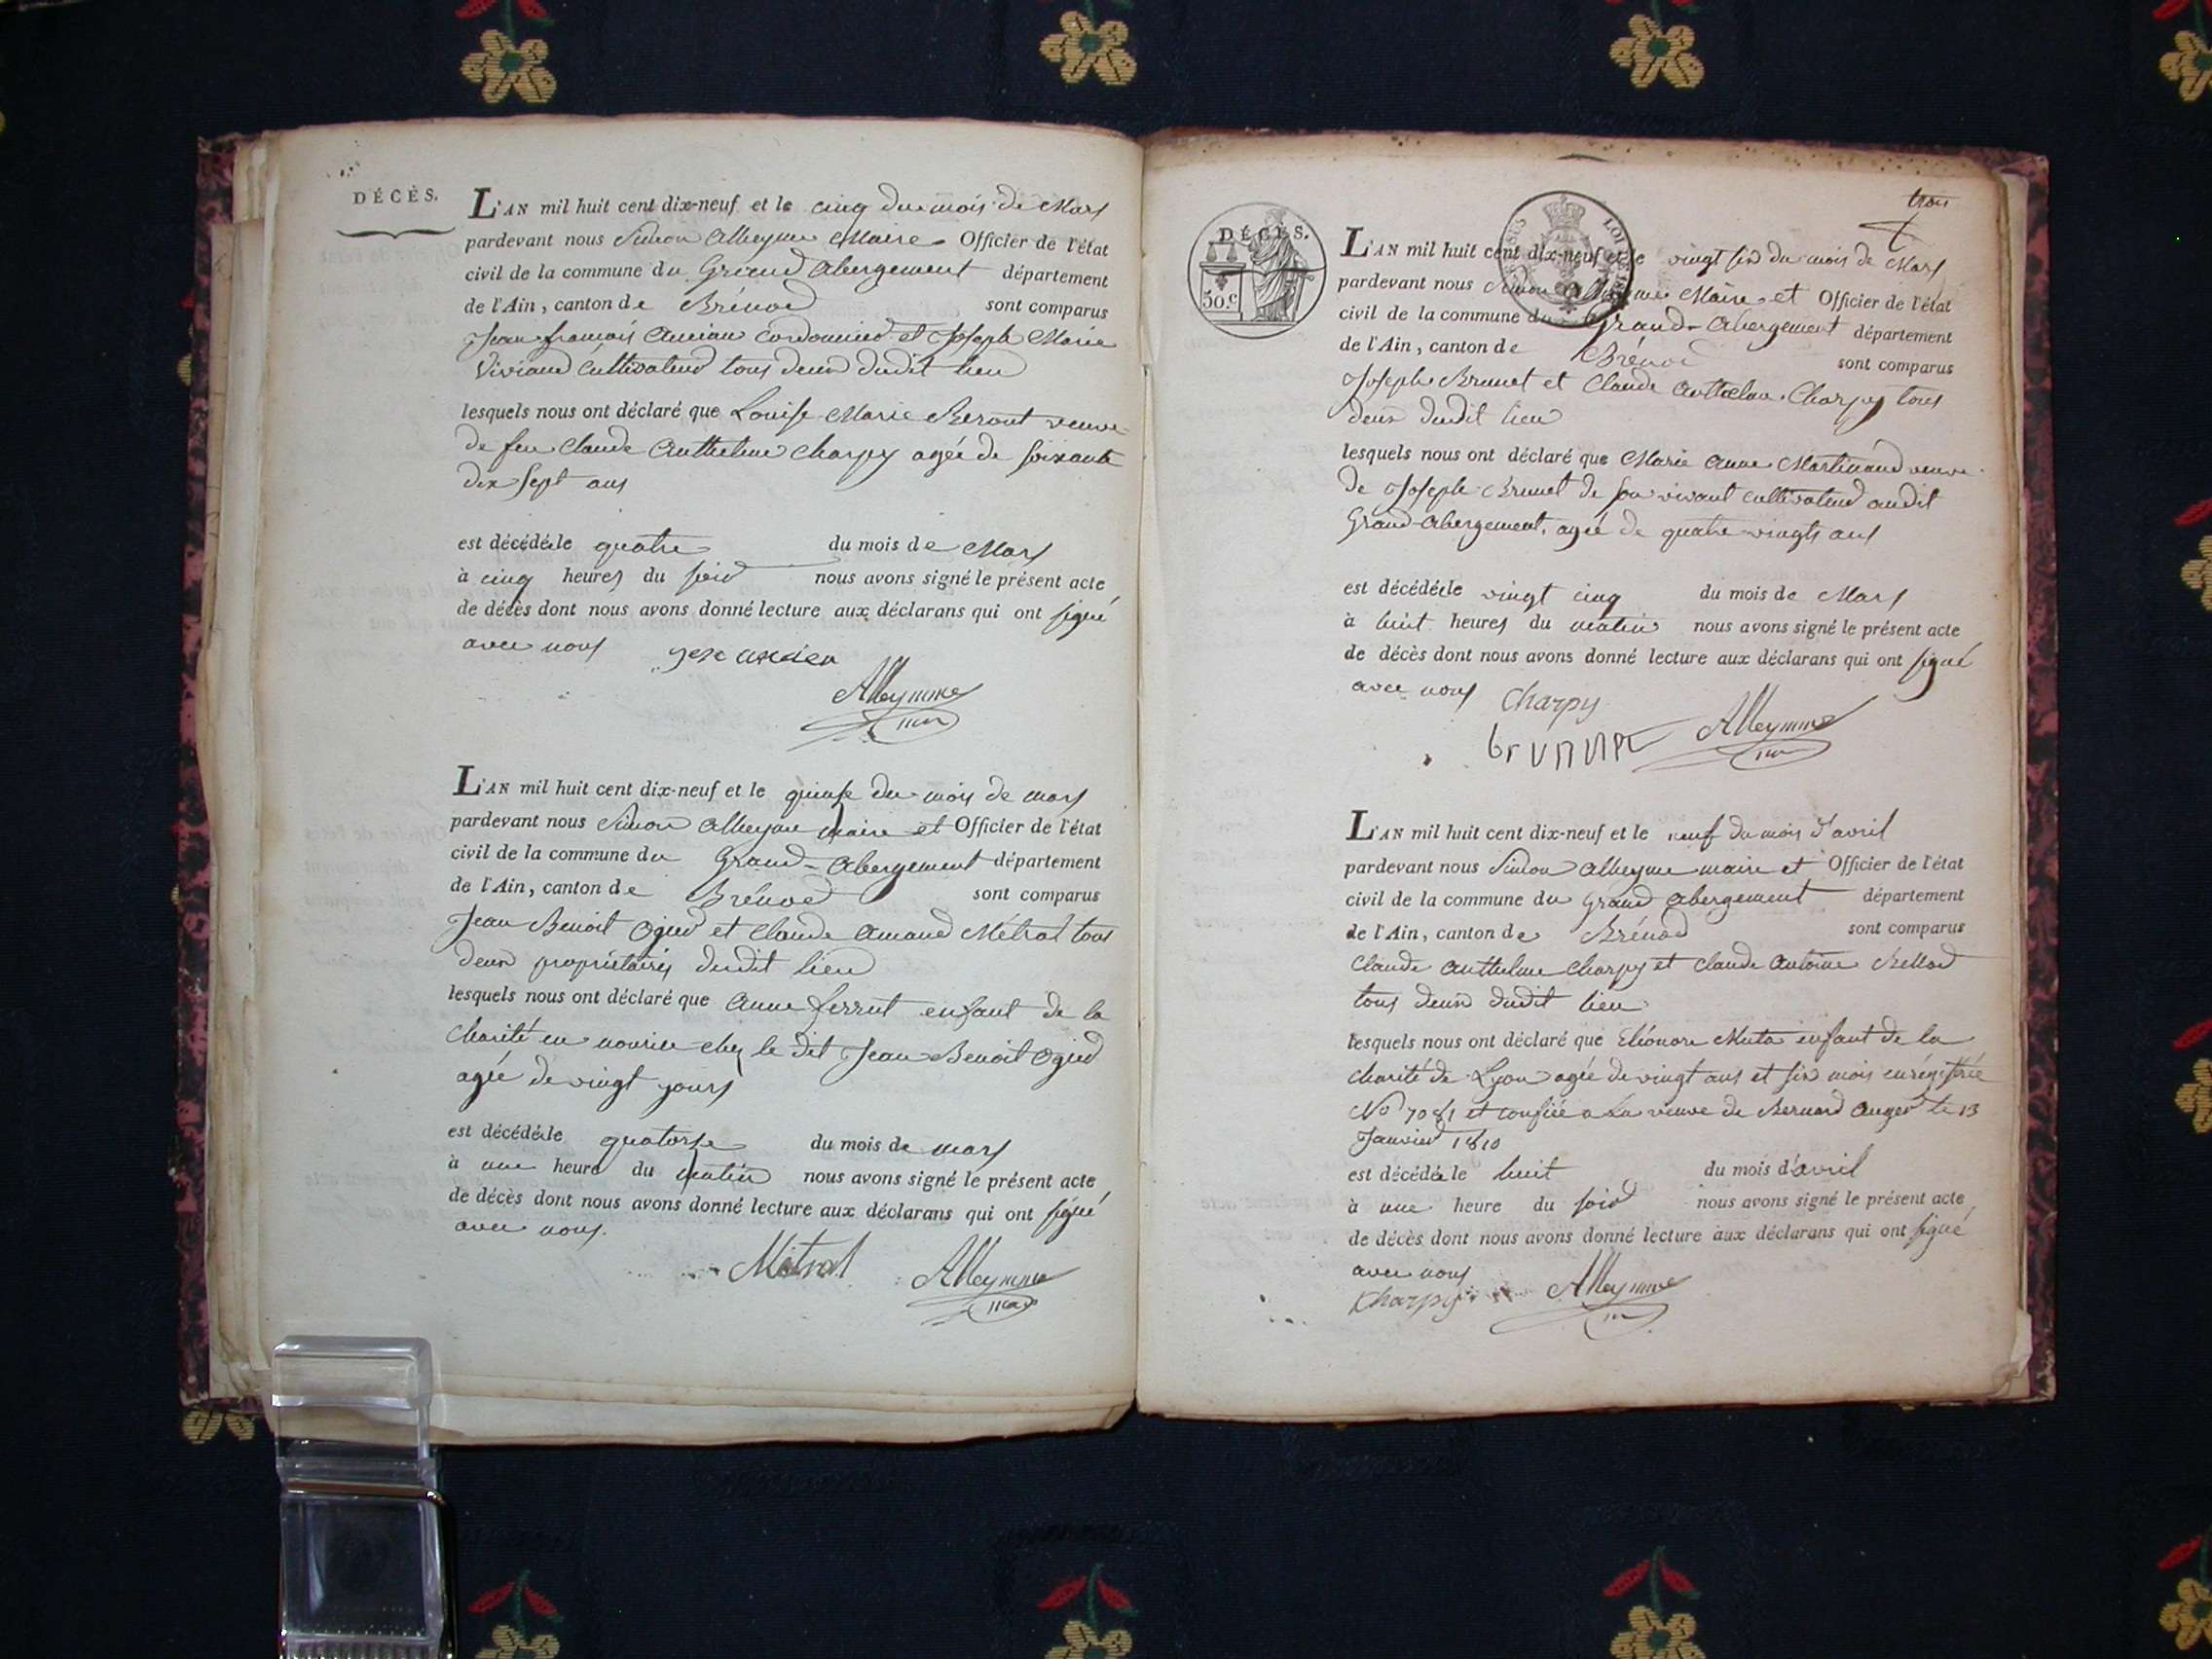 DÉCÈS.
L'AN mil huit cent dix-neuf et le cinq du mois de Mars
pardevant nous Simon Alleyme Maire Officier de l'état
civil de la commune du Grand Abergement département
de l'Ain, canton de Brénod sont comparus
Jean françois Cordonnier et Joseph Marie
Viviand Cultivateur tous deux dudit lieu
lesquels nous ont déclaré que Louise Marie veuve
de feu Claude Anthelme Charpy agée de soixante
dix sept ans
est décédée le quatre du mois de Mars
à cinq heures du soir nous avons signé le présent acte
de décès dont nous avons donné lecture aux déclarans qui ont signé
avec nous
Alleymme
L'AN mil huit cent dix-neuf et le quinse du mois de mars
pardevant nous Simon Alleyme maire et Officier de l'état
civil de la commune du Grand-Abergement département
de l'Ain, canton de Brénod sont comparus
Jean Benoit Ogier et Claude Amand Métral tous
deux propriétaires dudit lieu
lesquels nous ont déclaré que Anne ferrut enfant de la
Charité en nourice chez le dit Jean Benoit Ogier
agée de vingt jours
est décédée le quatorse du mois de mars
à une heure du matin nous avons signé le présent acte
de décès dont nous avons donné lecture aux déclarans qui ont signé
avec nous.
Métral Alleymme
trois
DÉCÈS.
50.c
L'AN mil huit cent dix-neuf et le vingt six du mois de Mars
pardevant nous Simon Alleyme Maire et Officier de l'état
civil de la commune du Grand-Abergement département
de l'Ain, canton de Brénod sont comparus
Joseph Brunet et Claude Anthelme Charpy tous
deux dudit lieu
lesquels nous ont déclaré que Marie Anne Martinand veuve
de Joseph Brunet de son vivant cultivateur audit
Grand-Abergement, agée de quatre vingts ans
est décédée le vingt cinq du mois de Mars
à huit heures du matin nous avons signé le présent acte
de décès dont nous avons donné lecture aux déclarans qui ont signé
avec nous Charpy
brunnet Alleymme
L'AN mil huit cent dix-neuf et le neuf du mois d'avril
pardevant nous Simon Alleyme maire et Officier de l'état
civil de la commune du Grand Abergement département
de l'Ain, canton de Brénod sont comparus
Claude Anthelme Charpy et Claude Antoine Billiod
tous deux dudit lieu
lesquels nous ont déclaré que Eléonore Muta enfant de la
charité de Lyon agée de vingt ans et six mois enrégistrée
No 7081 et confiée a la veuve de Bernard Auger le 13
Janvier 1810
est décédée le huit du mois d'avril
à une heure du soir nous avons signé le présent acte
de décès dont nous avons donné lecture aux déclarans qui ont signé
avec nous
Charpy Alleymme